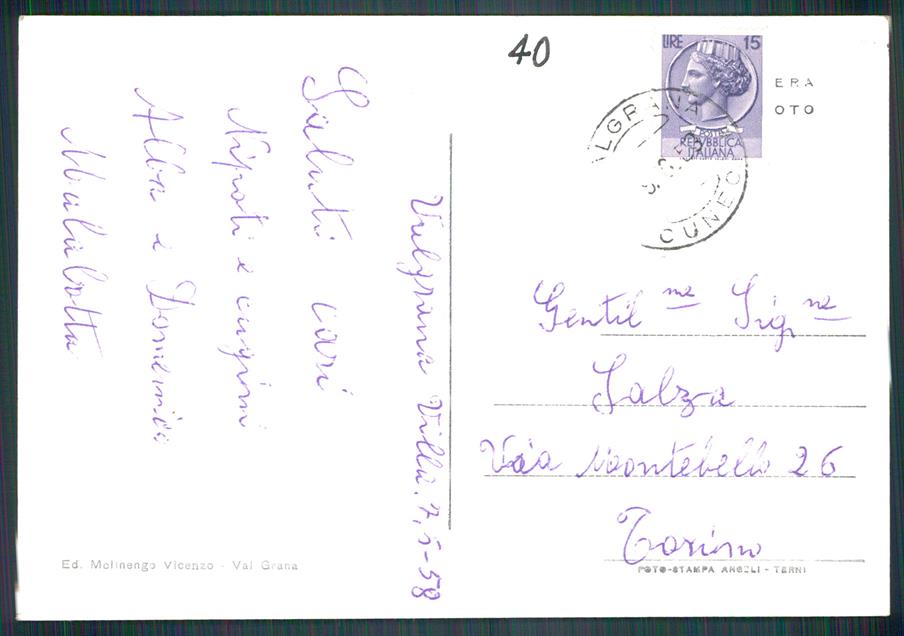 40
LIRE 15
POSTE
REPUBBLICA
ITALIANA
ERA
OTO
LGRANA
CUNEO
Valgrana Villa. 7, 5-58
Saluti cari
Nipoti e cugini
Alba e Domenica
Malabotta
Gentil me Sig ne
Salza
Via Montebello 26
Torino
Ed. Molinengo Vicenzo - Val Grana
FOTO-STAMPA ANGELI - TERNI